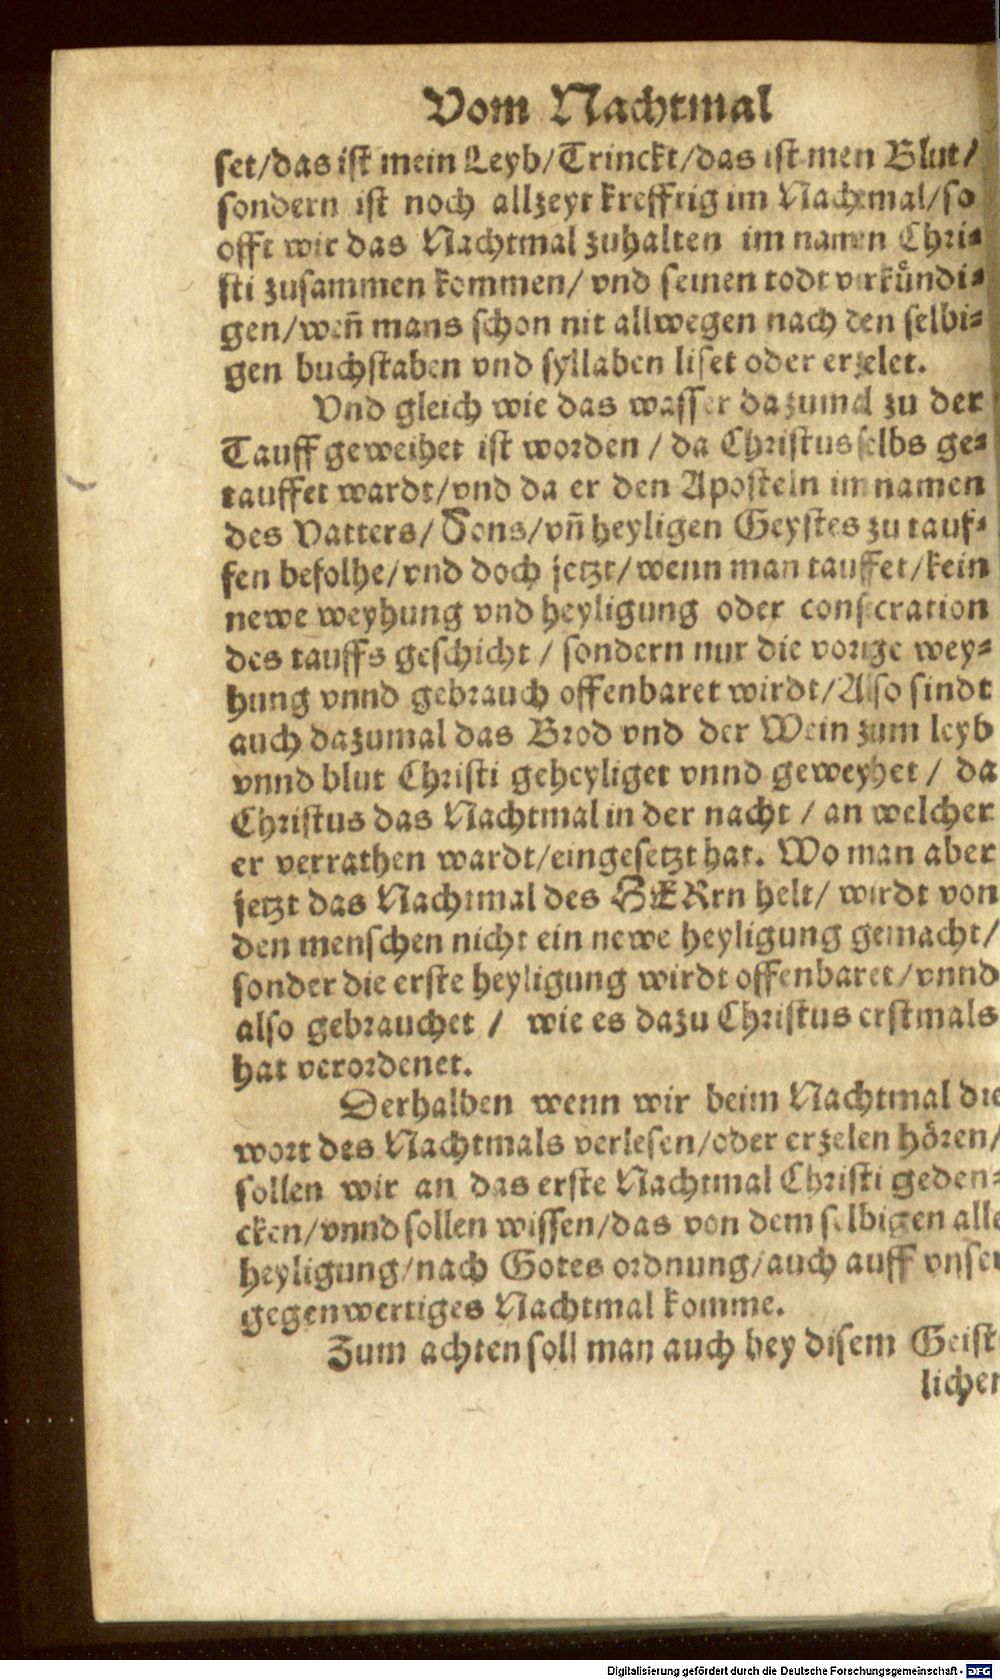 Vom Nachtmal
set/das ist mein Leyb/Trinckt/das ist men Blut/
sondern ist noch allzeyt krefftig im Nachtmal/so
offt wir das Nachtmal zuhalten im namen Chri⸗
sti zusammen kommen/ vnd seinen todt verkuͤndi⸗
gen/weñ mans schon nit allwegen nach den selbi⸗
gen buchstaben vnd syllaben liset oder erzelet.
Vnd gleich wie das wasser dazumal zu der
Tauff geweihet ist worden / da Christus selbs ge⸗
tauffet wardt/vnd da er den Aposteln im namen
des Vatters/ Sons/vñ heyligen Geystes zu tauf⸗
fen befolhe/vnd doch jetzt/wenn man tauffet/kein
newe weyhung vnd heyligung oder consecration
des tauffs geschicht / sondern nur die vorige wey⸗
hung vnnd gebrauch offenbaret wirdt/Also sindt
auch dazumal das Brod vnd der Wein zum leyb
vnnd blut Christi geheyliget vnnd geweyhet / da
Christus das Nachtmal in der nacht / an welcher
er verrathen wardt/eingesetzt hat. Wo man aber
jetzt das Nachtmal des HERrn helt/ wirdt von
den menschen nicht ein newe heyligung gemacht/
sonder die erste heyligung wirdt offenbaret/vnnd
also gebrauchet / wie es dazu Christus erstmals
hat verordenet.
Derhalben wenn wir beim Nachtmal die
wort des Nachtmals verlesen/oder erzelen hören/
sollen wir an das erste Nachtmal Christi geden⸗
cken/vnnd sollen wissen/das von dem selbigen alle
heyligung/nach Gotes ordnung/auch auff vnser
gegenwertiges Nachtmal komme.
Zum achten soll man auch bey disem Geist
lichen
Digitalisierung gefördert durch die Deutsche Forschungsgemeinschaft - DFG